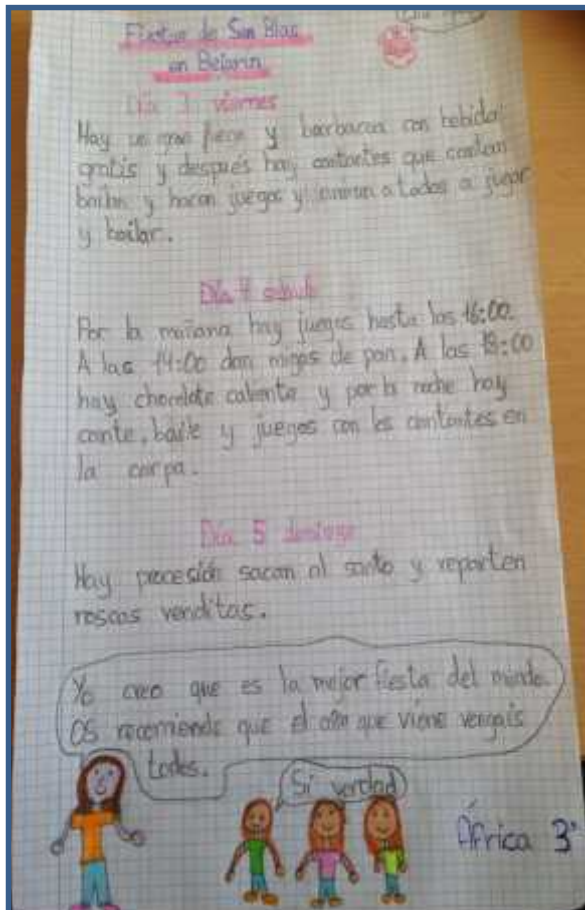 Fiestas de San Blas
en Befarin
Día 3 viernes
Hay un gran fuego y barbacoa con bebida
gratis y después hay cantantes que cantan
bailan y hacen juegos y animan a todos a jugar
y bailar.
Día 4 sabado
Por la mañana hay juegos hasta las 16:00.
A las 14:00 dan migas de pan. A las 18:00
hay chocolate caliente y por la noche hay
cante, baile y juegos con los cantantes en
la carpa.
Día 5 domingo
Hay procesión sacan al santo y reparten
roscas venditas.
Yo creo que es la mejor fiesta del mundo.
OS recomiendo que el año que viene vengais
todos.
Si verdad
África 3º